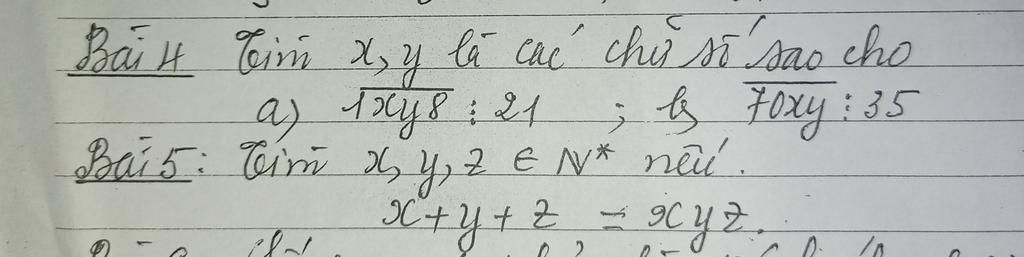 Bài 4 Tìm x, y là các chữ số sao cho
a) 1xy8 ⋮ 21 ; b) 70xy ⋮ 35
Bài 5: Tìm x, y, z ∈ N* nếu.
x + y + z = xyz.